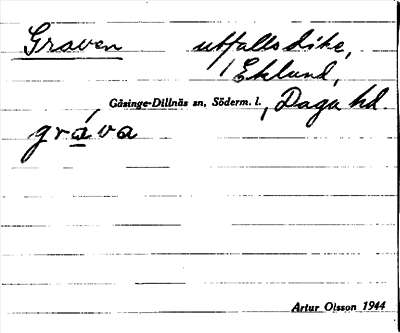 Graven utfallsdike,
i Eklund,
Gåsinge-Dillnäs sn, Söderm. l., Daga hd.
gráva
Artur Olsson 1944